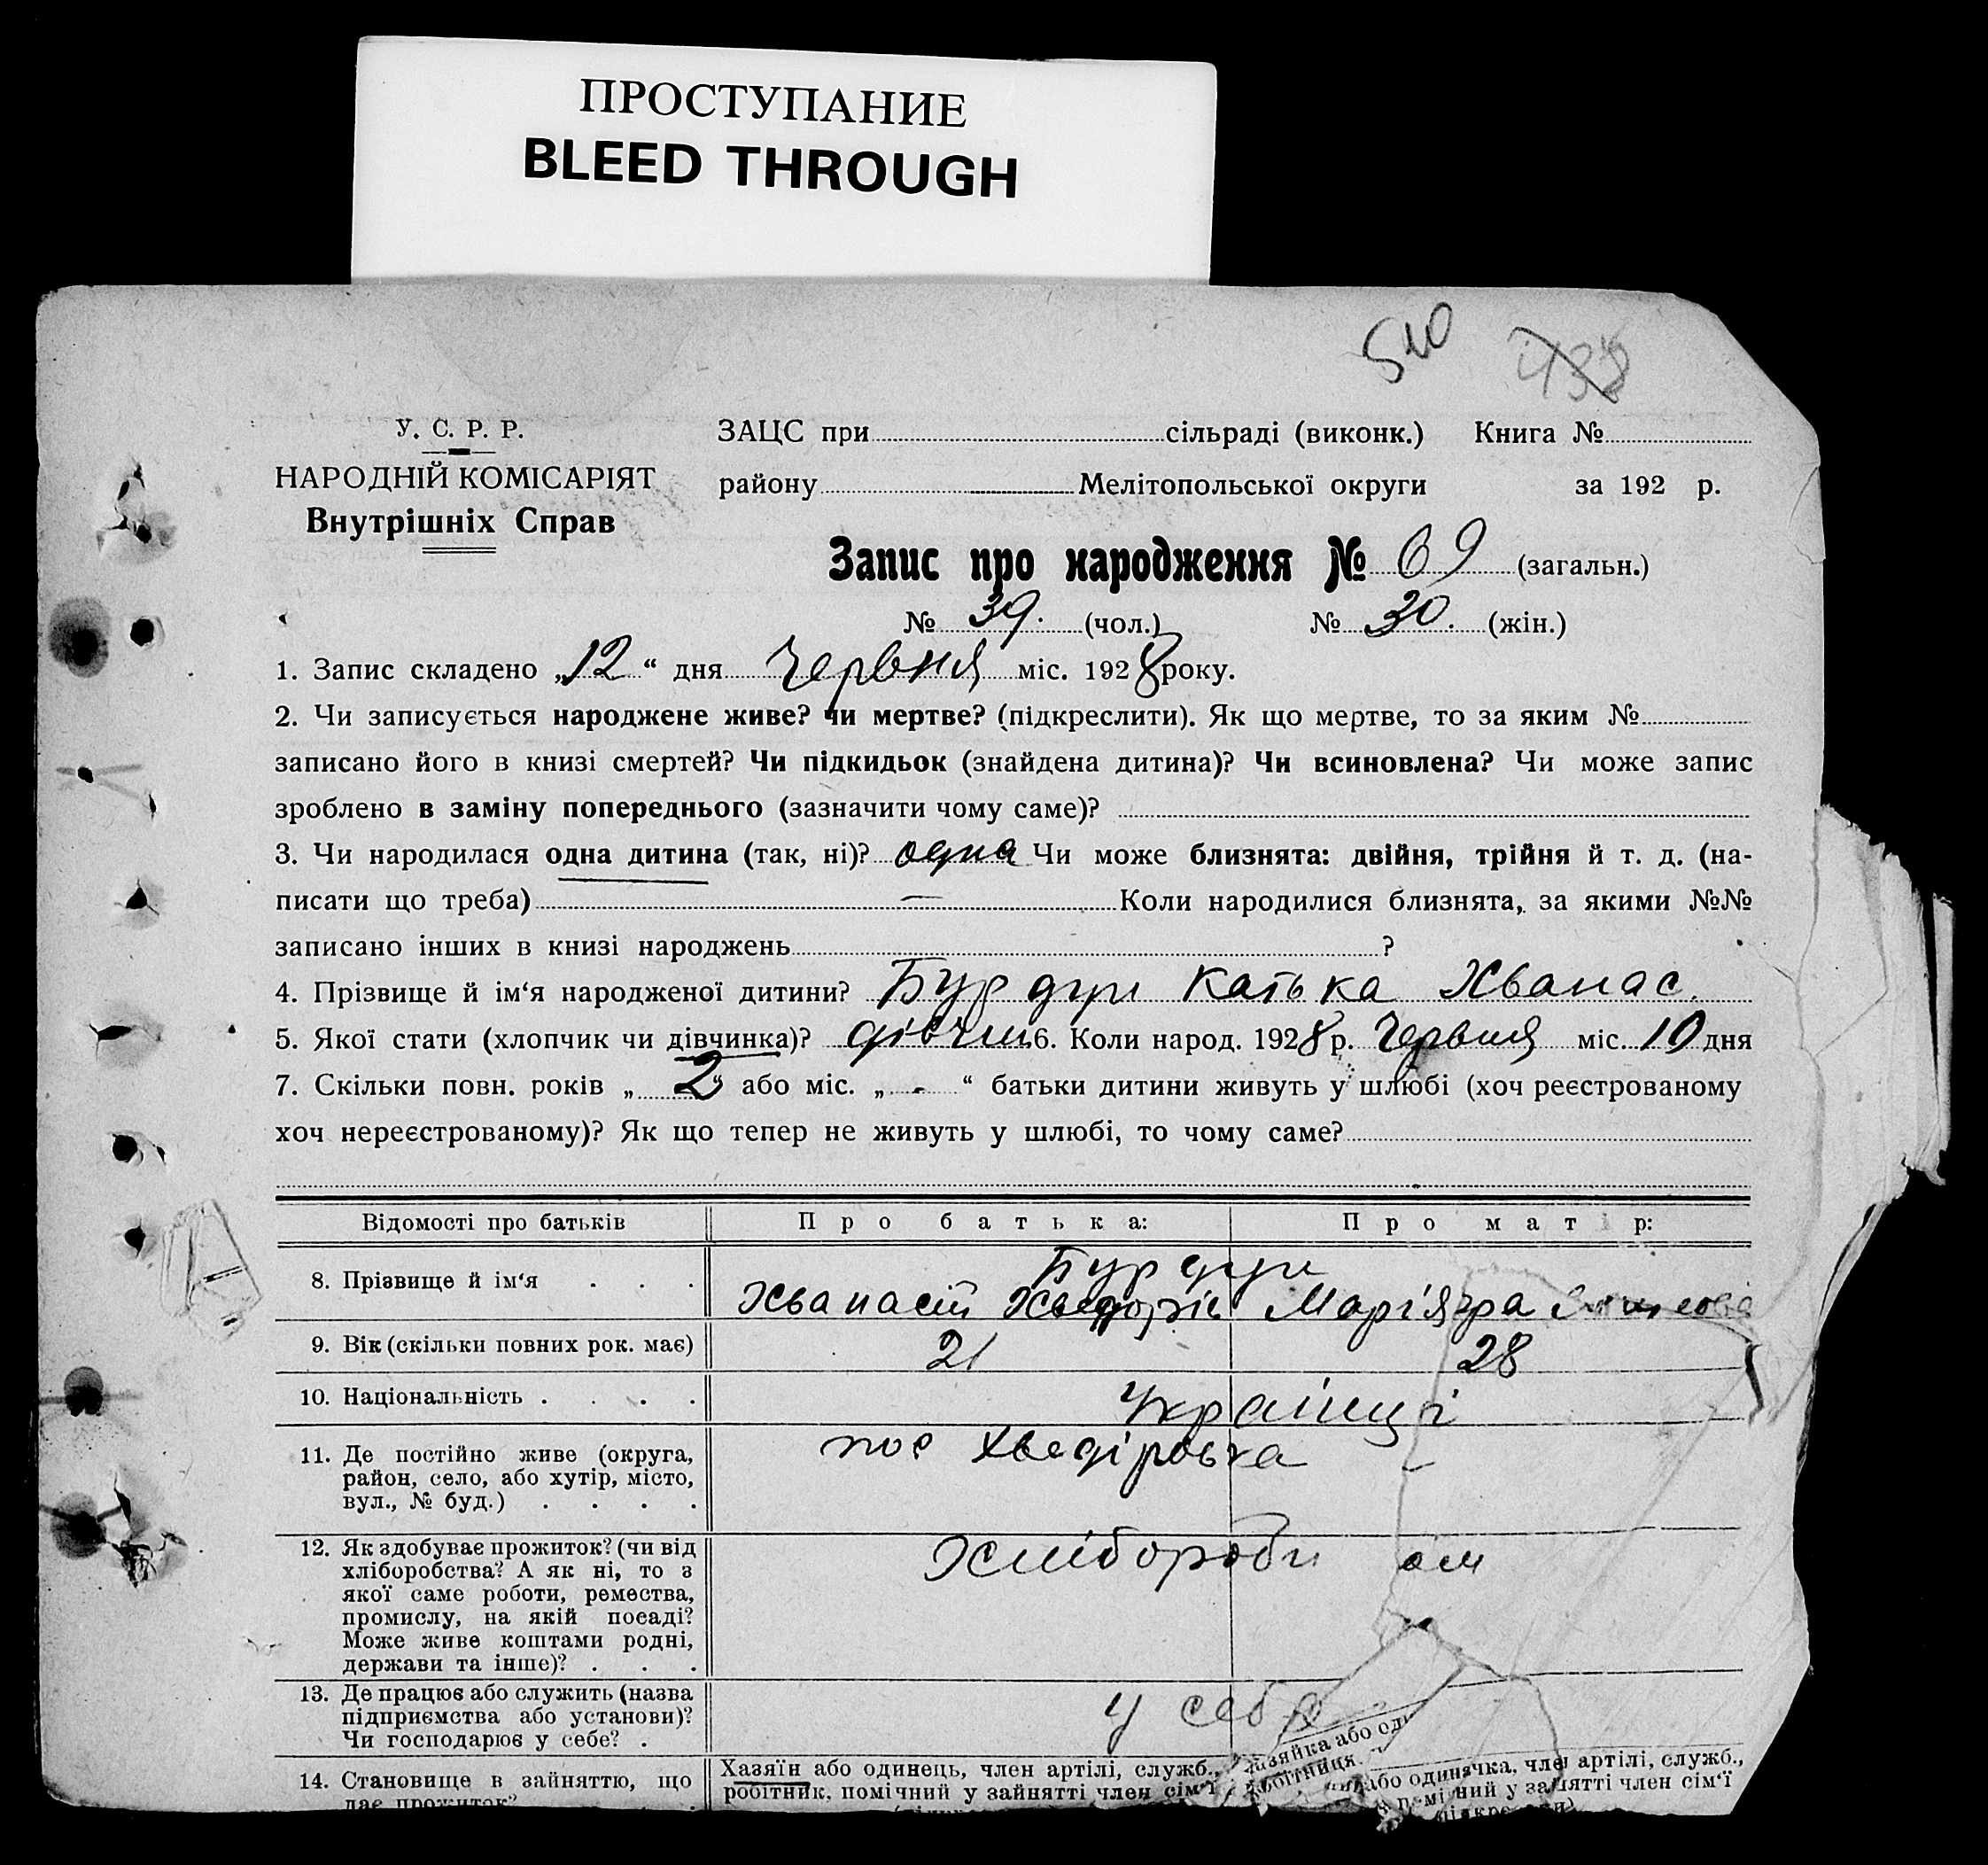 ПРОСТУПАНИЕ
BLEED THROUGH
510 438
У. С. Р. Р.
НАРОДНІЙ КОМІСАРІЯТ
Внутрішніх Справ
ЗАЦС при сільраді (виконк.) Книга №
району Мелітопольської округи за 192 р.
Запис про народження № 69 (загальн.)
№ 39. (чол.) № 30. (жін.)
1. Запис складено „12“ дня Червня міс. 1928 року.
2. Чи записується народжене живе? чи мертве? (підкреслити). Як що мертве, то за яким №
записано його в книзі смертей? Чи підкидьок (знайдена дитина)? Чи всиновлена? Чи може запис
зроблено в заміну попереднього (зазначити чому саме)?
3. Чи народилася одна дитина (так, ні)? одна Чи може близнята: двійня, трійня й т. д. (на-
писати що треба) — Коли народилися близнята, за якими №№
записано інших в книзі народжень ?
4. Прізвище й ім‘я народженої дитини? Бурдун Катька Хванас.
5. Якої стати (хлопчик чи дівчинка)? дівчин 6. Коли народ. 1928 р. Червня міс. 10 дня
7. Скільки повн. років „2“ або міс. „-“ батьки дитини живуть у шлюбі (хоч реєстрованому
хоч нереєстрованому)? Як що тепер не живуть у шлюбі, то чому саме?
Відомості про батьків Про батька: Про матір:
Бурдун
8. Прізвище й ім‘я . . . Хванасій Хведорів Мар'я
9. Вік (скільки повних рок. має) 21 28
10. Національність . . . . Українці
11. Де постійно живе (округа, пос Хведіровка -
район, село, або хутір, місто,
вул., № буд.) . . . .
12. Як здобуває прожиток? (чи від Хлібороби
хліборобства? А як ні, то з
якої саме роботи, ремества,
промислу, на якій посаді?
Може живе коштами родні,
держави та інше)? . . .
13. Де працює або служить (назва у себе
підприємства або установи)?
Чи господарює у себе? .
14. Становище в зайняттю, що Хазяїн або одинець, член артілі, служб., або одиначка, член артілі, служб.,
дає прожиток? робітник, помічний у зайнятті член сім‘ї у зайнятті член сім‘ї